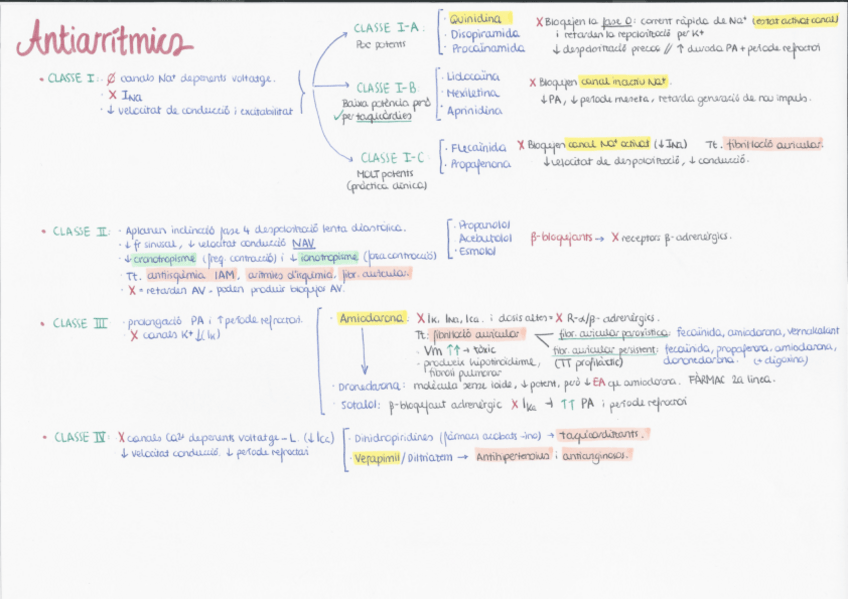 Antiarrítmics
• CLASSE I: Ø canals Na+ depenents voltatge.
· X INa
· ↓ velocitat de conducció i excitabilitat
CLASSE I-A
Poc potents
· Quinidina
· Disopiramida
· Procaïnamida
X Bloquejen la fase 0: corrent ràpida de Na+ (estat activat canal)
i retarden la repolarització per K+
↓ despolarització precoç // ↑ durada PA + període refractari
CLASSE I-B
Baixa potència però
✓ per taquicàrdies
· Lidocaïna
· Mexiletina
· Aprinidina
X Bloquejen canal inactiu Na+.
↓ PA, ↓ període meseta, retarda generació de nou impuls.
CLASSE I-C
MOLT potents
(pràctica clínica)
· Flecaïnida
· Propafenona
X Bloquejen canal Na+ activat (↓ INa) Tt. fibril·lació auricular.
↓ velocitat de despolarització, ↓ conducció.
• CLASSE II: · Aplanen inclinació fase 4 despolarització lenta diastòlica.
· ↓ fr sinusal, ↓ velocitat conducció NAV
· ↓ cronotropisme (freq. contracció) i ↓ ionotropisme (força contracció)
· Tt. antisquèmia IAM, arítmies d'isquèmia. fibr. auricular.
· X = retarden AV - poden produir bloquejos AV.
· Propanolol
· Acebutolol
· Esmolol
β-bloquejants → X receptors β-adrenèrgics.
• CLASSE III · prolongació PA i ↑ període refractari.
· X canals K+ ↓(IK)
· Amiodarona: X IK, INa, ICa. i dosis altes = X R-α/β- adrenèrgics.
Tt. fibril·lació auricular
fibr. auricular paroxística: flecaïnida, amiodarona, vernakalant
fibr. auricular persistent: flecaïnida, propaferona, amiodarona,
(TT profilàctic) dronedarona. (+ digoxina)
· Vm ↑↑ → tòxic
· produeix hipotiroïdisme,
fibrosi pulmonar
· Dronedarona: molècula sense iode, ↓ potent, però ↓ EA que amiodarona. FÀRMAC 2a línea.
· Sotalol: β-bloquejant adrenèrgic X IKr → ↑↑ PA i període refractari
• CLASSE IV: X canals Ca2+ depenents voltatge - L. (↓ ICC)
↓ velocitat conducció. ↓ període refractari
· Dihidropiridines (fàrmacs acabats -ino) → taquicarditzants.
· Verapimil / Diltriazem → Antihipertensius i antianginosos.